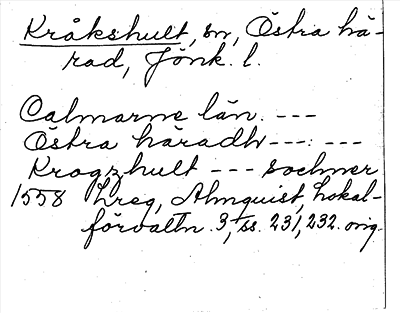 Kråkshult, sn, Östra hä-
rad, Jönk. l.
Calmarne län. ---
Östra häradh ---. ---
Kragzhult --- sochner
1558 hreg, Almquist, Lokal-
förvaltn. 3, ss. 231, 232. orig.